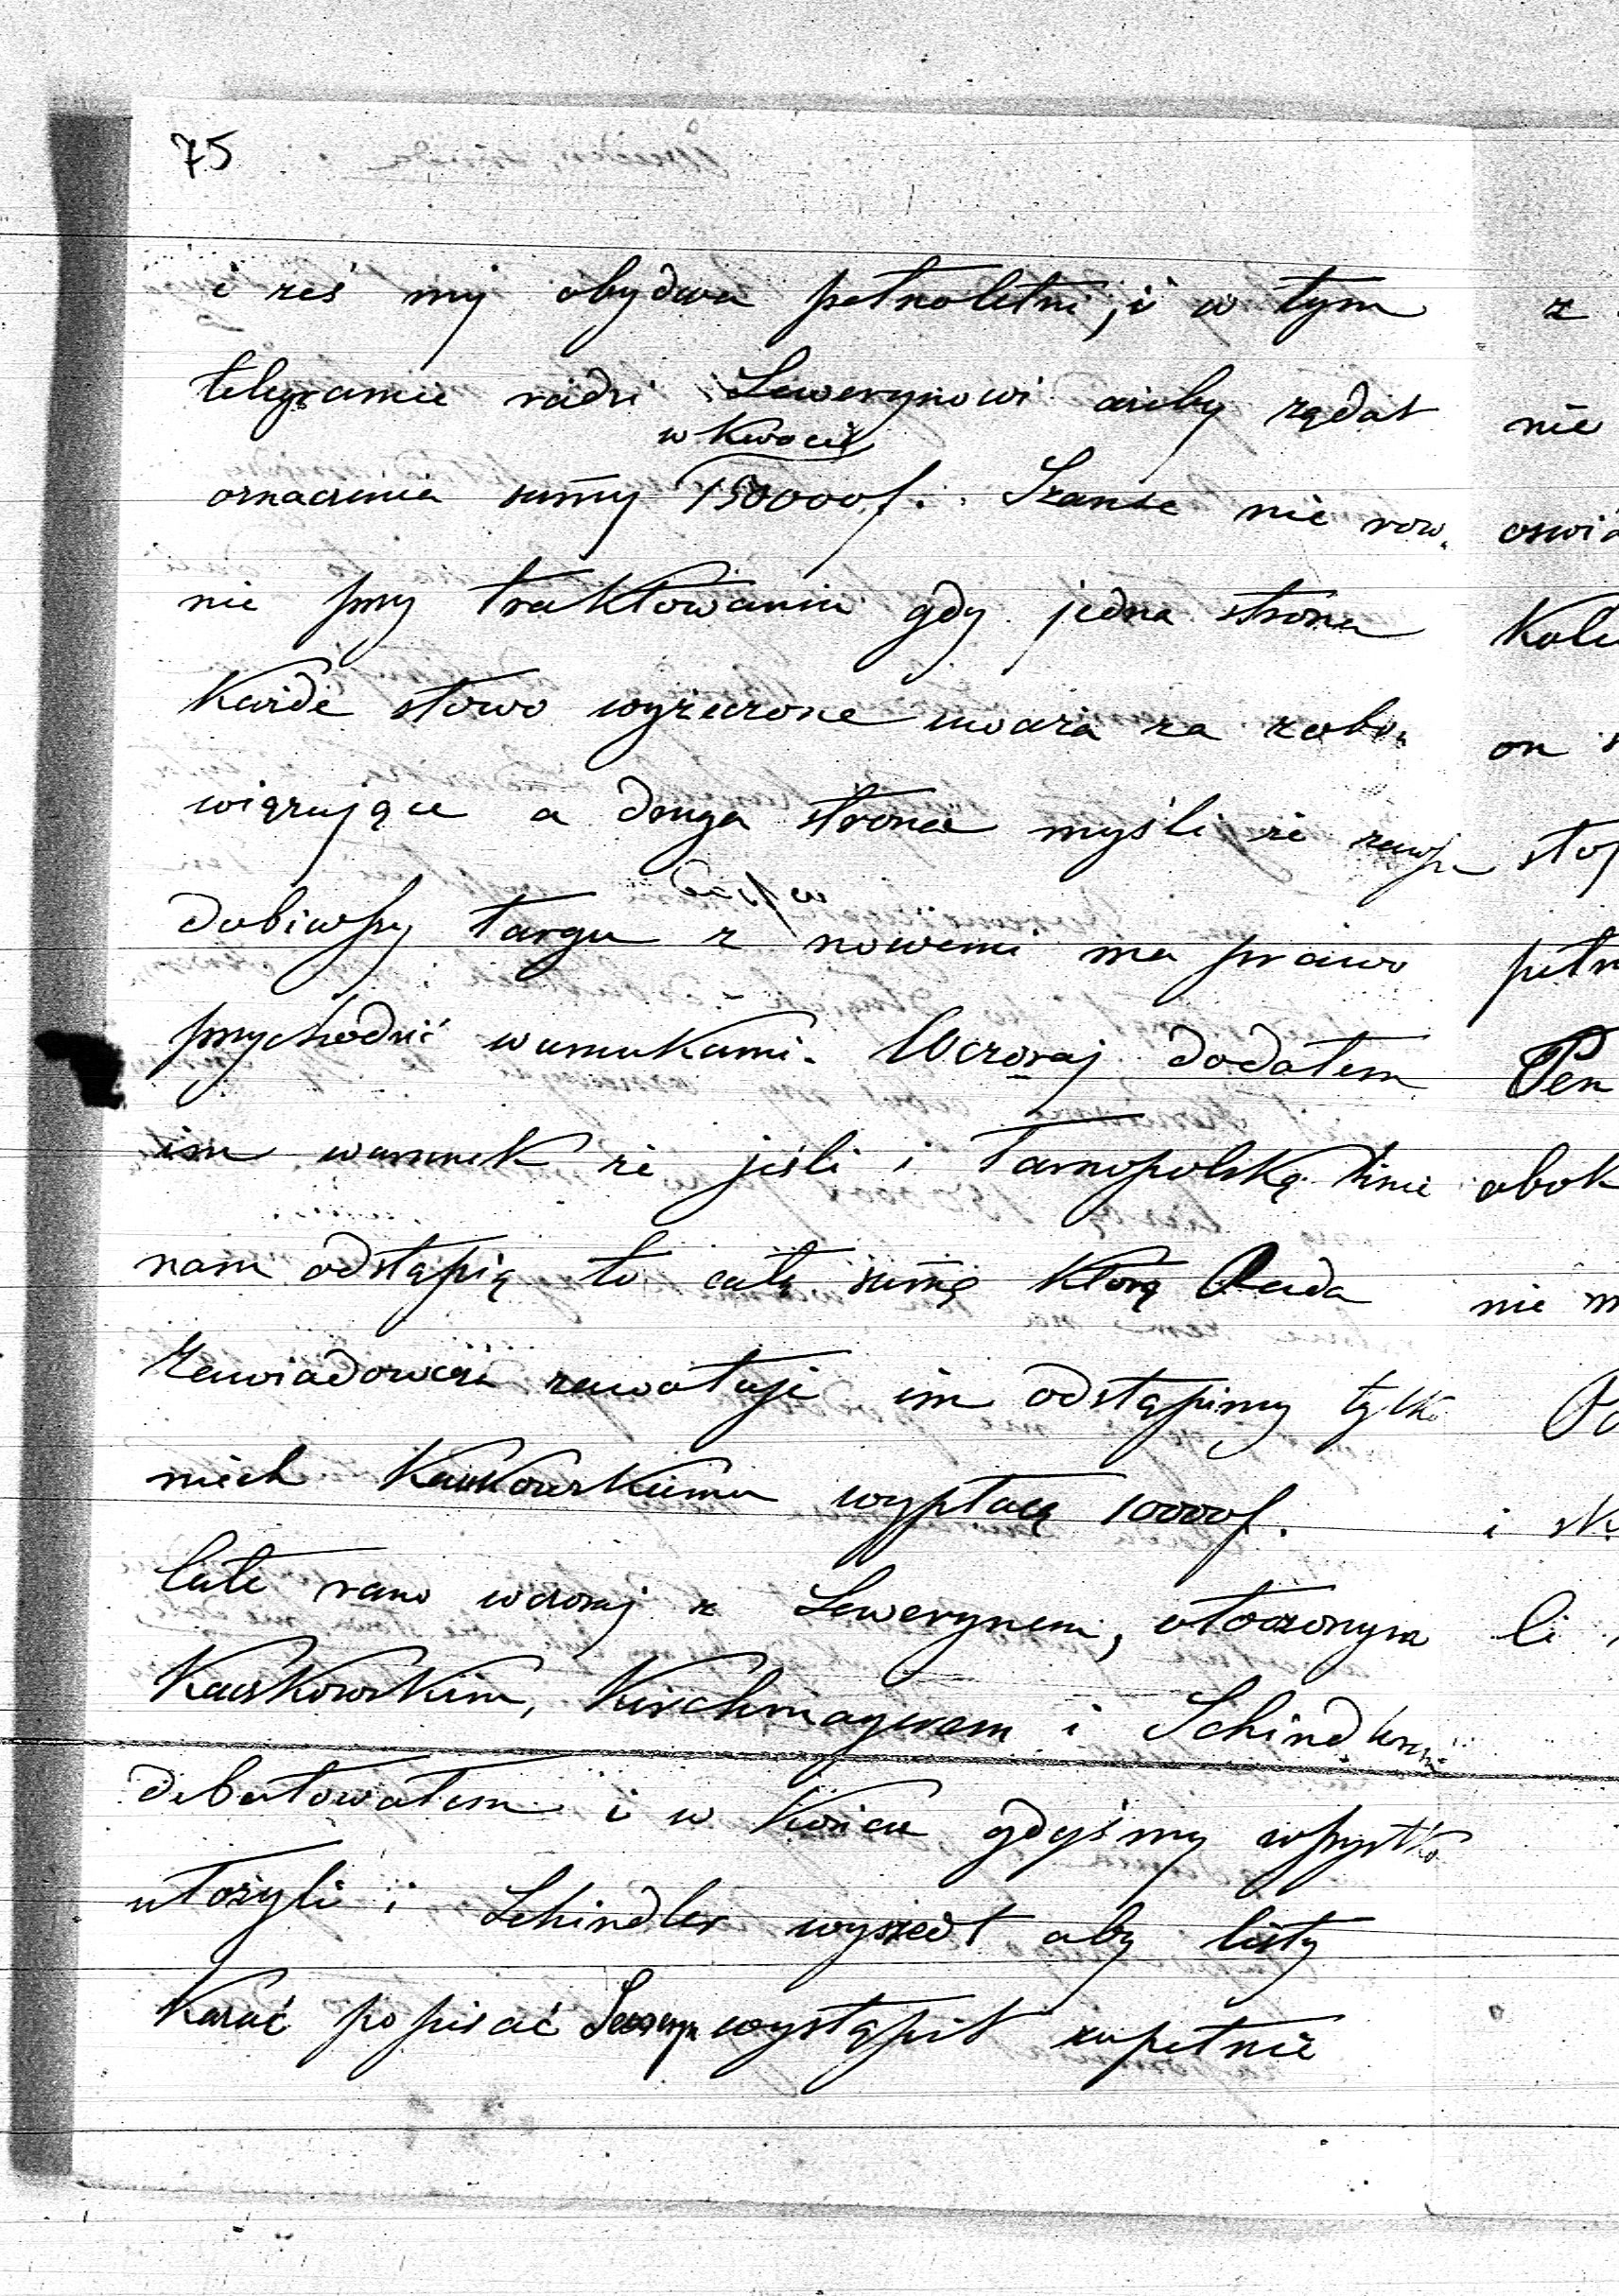 75
i żeś my obydwa pełnoletni, i w tym
telegramie radzi Sewerynowi ażeby żądał
w kwocie
oznaczenia sumy 150000f. Szanse nie rów-
nie przy traktowaniu gdy jedna strona
każde słowo wyrzeczone uważa za zobo-
wiązujące a druga strona myśli że zawsze
dobiwszy targu z nowemi ma prawo
przychodzić warunkami. Wczoraj dodałem
im warunek że jeśli i Tarnopolską linie
nam odstąpią to całą sumę którą Rada
Zawiadowcza zawotuje im odstąpimy tylko
niech Kaczkowskiemu wypłacą 10000f.
Całe rano wczoraj z Sewerynem, otoczonym
Kaczkowskim, Kirchmayerem i Schindlerem
debatowałem i w końcu gdyśmy wszystko
ułożyli i Schindler wyszedł aby listy
kazać popisać Seweryn wystąpił zupełnie
z
nie
oswia
Kole
on
stop
pełn
Pan
obok
nie m
i
li